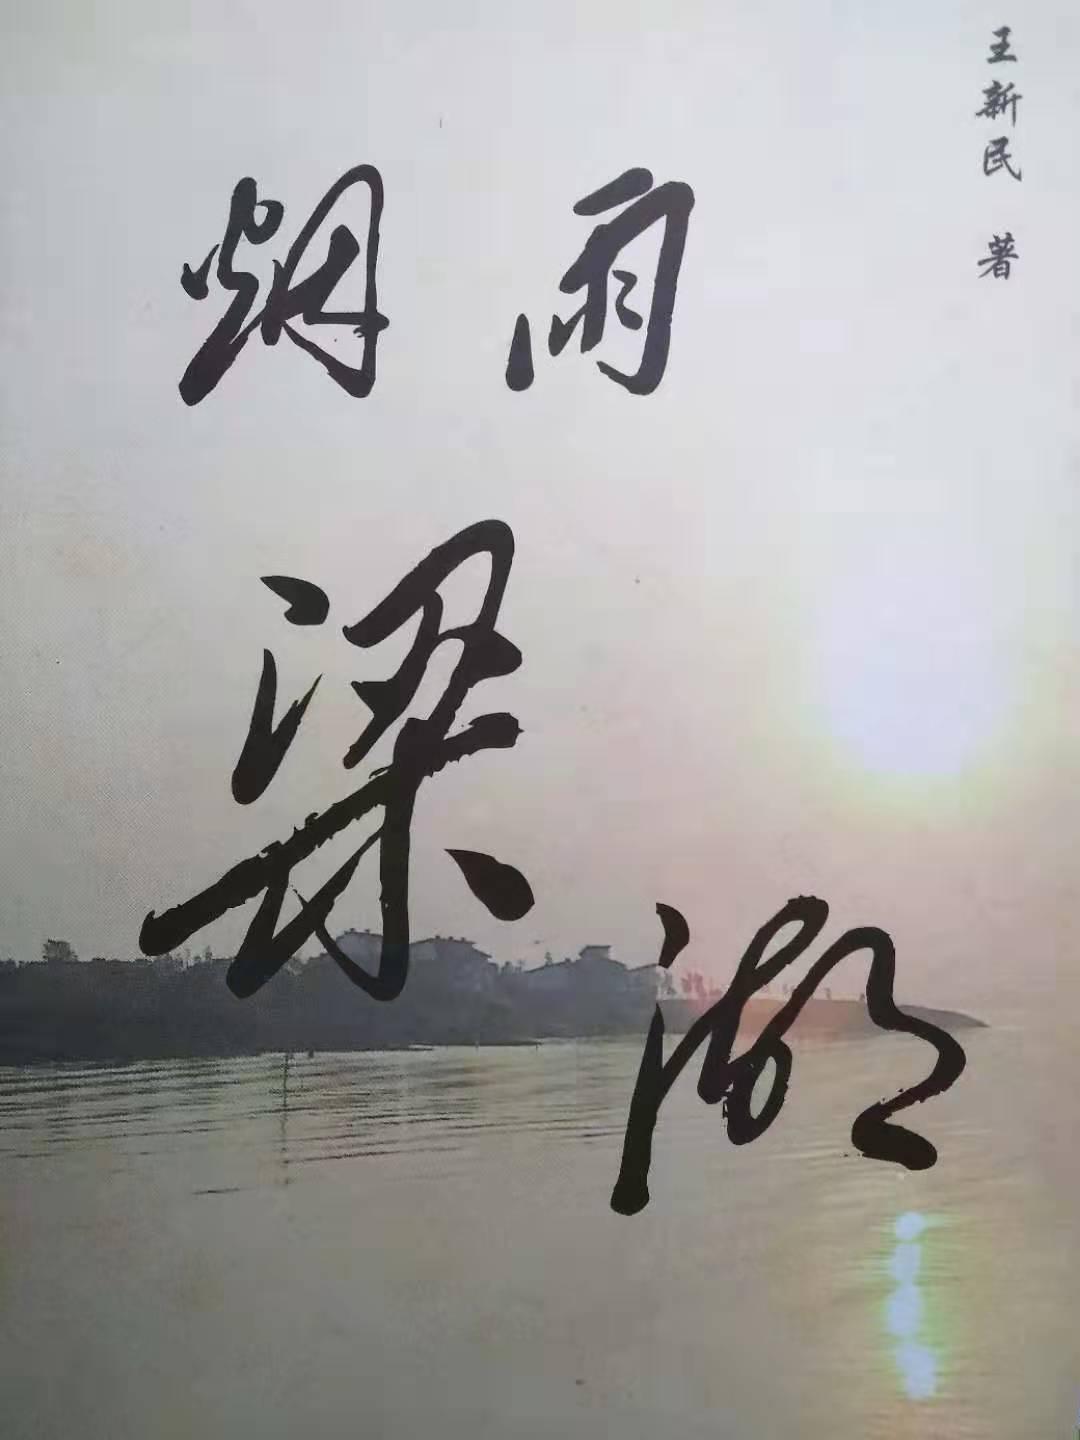 烟雨
梁湖
王新民 著